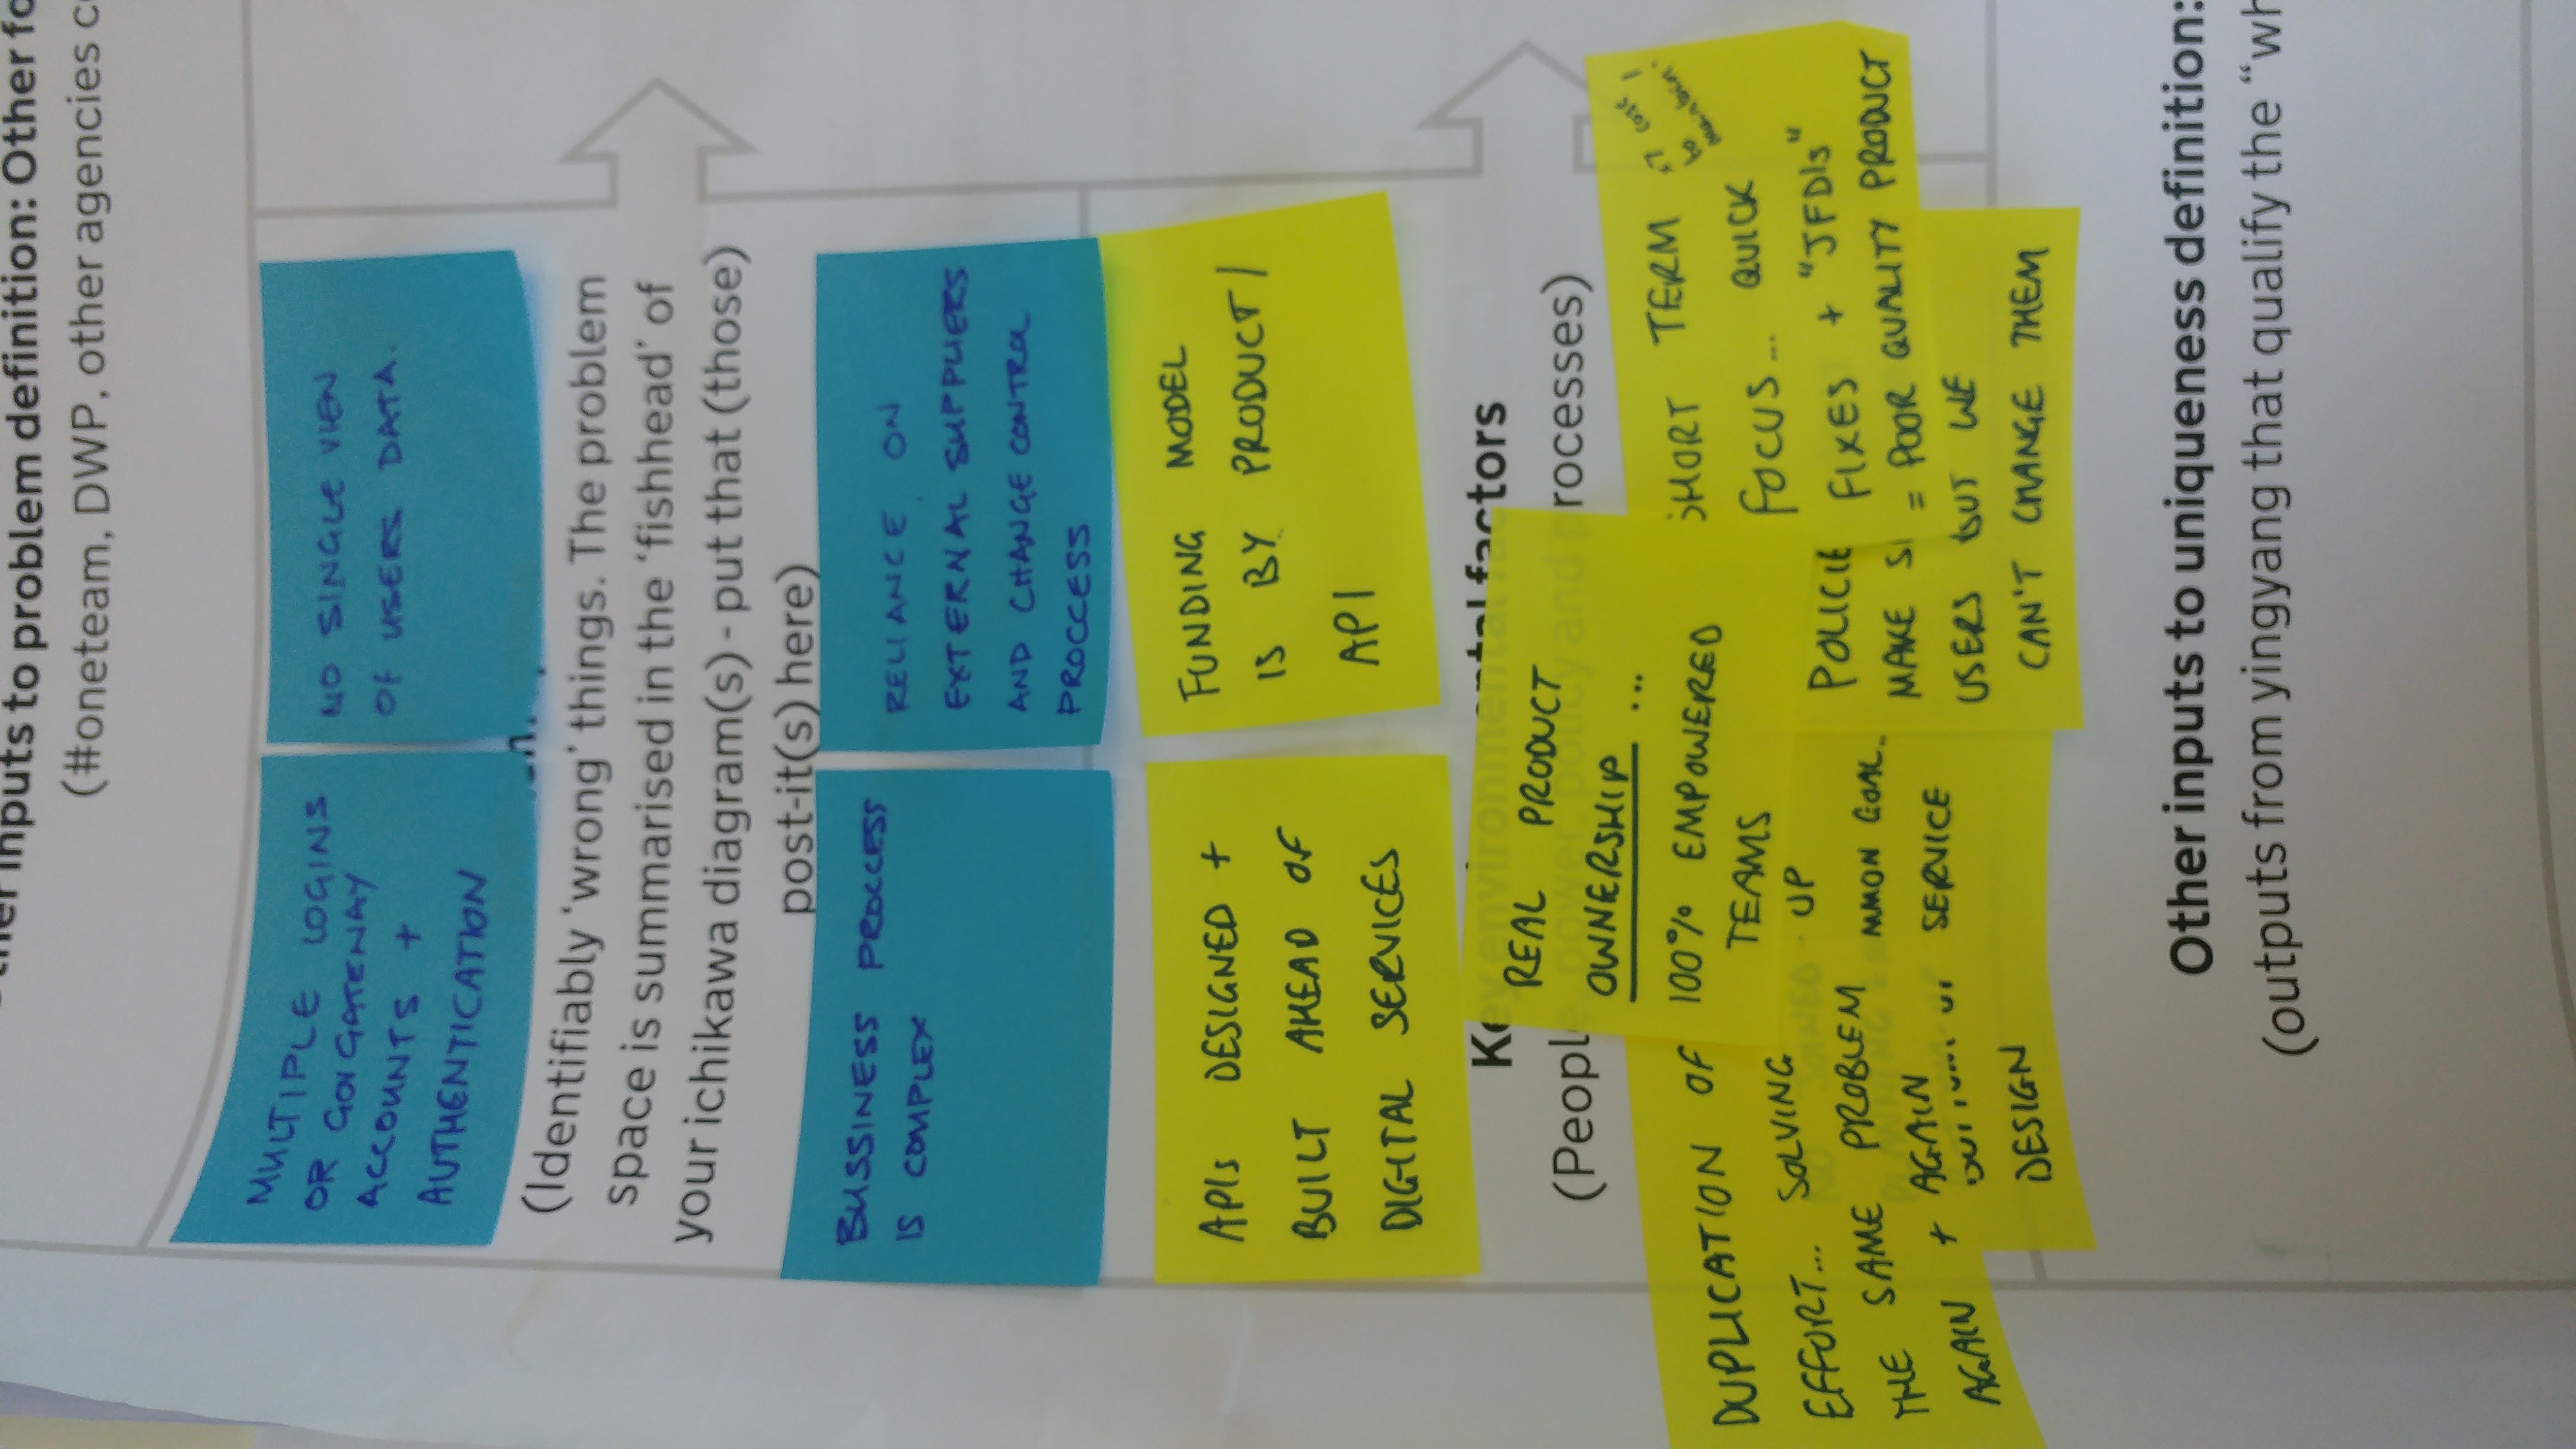 inputs to problem definition: Other
(#oneteam, DWP, other agencies
MULTIPLE LOGINS
OR GOV GATEWAY
ACCOUNTS +
AUTHENTICATION
NO SINGLE VIEW
OF USERS DATA.
(Identifiably ‘wrong’ things. The problem
space is summarised in the ‘fishhead’ of
your ichikawa diagram(s) - put that (those)
post-it(s) here)
BUSSINESS PROCCESS
IS COMPLEX
RELIANCE ON
EXTERNAL SUPPLIERS
AND CHANGE CONTROL
PROCCESS
APIs DESIGNED +
BUILT AHEAD OF
DIGITAL SERVICES
FUNDING MODEL
IS BY PRODUCT /
API
Key environmental factors
(People, power, policy and processes)
REAL PRODUCT
OWNERSHIP ...
100% EMPOWERED
TEAMS
DUPLICATION OF
EFFORT... SOLVING
THE SAME PROBLEM
AGAIN + AGAIN
NO JOINED UP
PLANNING
MMON GOAL.
SERVICE
DESIGN
SHORT TERM
FOCUS... QUICK
FIXES + "JFDIs"
= POOR QUALITY PRODUCT
x7 cost
to
maintain!
POLICIE
MAKE
USERS BUT WE
CAN'T CHANGE THEM
Other inputs to uniqueness definition:
(outputs from yingyang that qualify the “wh